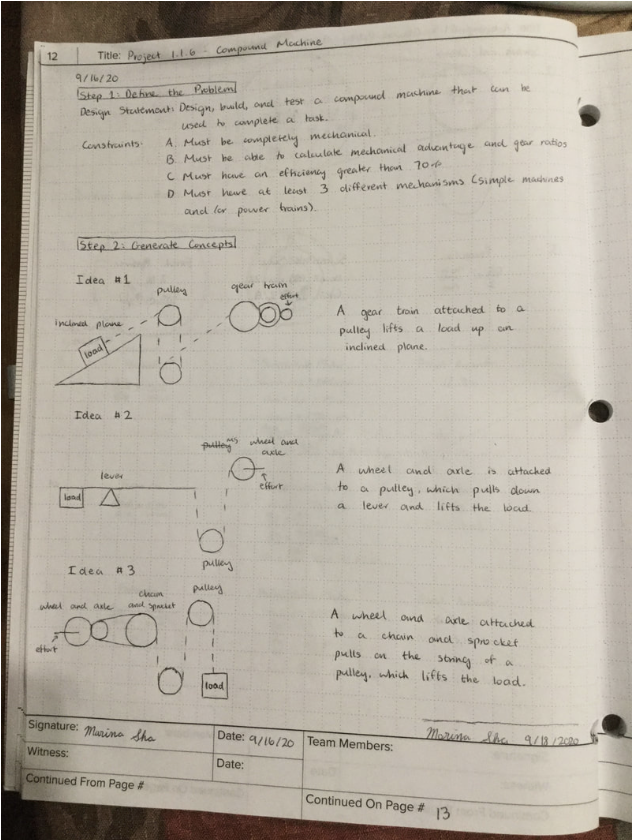 12 Title: Project 1.1.6 - Compound Machine
9/16/20
Step 1: Define the Problem
Design Statement: Design, build, and test a compound machine that can be
used to complete a task.
Constraints: A. Must be completely mechanical.
B. Must be able to calculate mechanical advantage and gear ratios
C. Must have an efficiency greater than 70%
D Must have at least 3 different mechanisms (simple machines
and/or power trains).
Step 2: Generate Concepts
Idea #1
pulley
gear train
effort
inclined plane
load
A gear train attached to a
pulley lifts a load up an
inclined plane.
Idea #2
pulley MS wheel and
axle
effort
lever
load
pulley
A wheel and axle is attached
to a pulley, which pulls down
a lever and lifts the load.
Idea #3
pulley
chain
wheel and axle and sprocket
effort
load
A wheel and axle attached
to a chain and sprocket
pulls on the string of a
pulley, which lifts the load.
Marina Sha 9/18/2020
Signature: Marina Sha Date: 9/16/20 Team Members:
Witness: Date:
Continued From Page # Continued On Page # 13